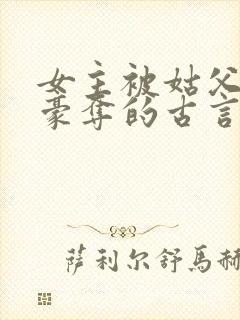 女主被姑父
豪夺的古言
萨利尔舒馬赫